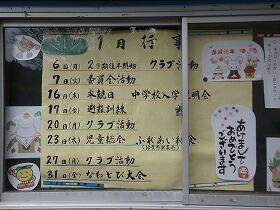 1月行事
6日(月) 2学期後半開始 クラブ活動
7日(火) 委員会活動
16日(木) 参観日 中学校入学説明会
17日(金) 避難訓練
20日(月) クラブ活動
23日(木) 児童総会 ふれあい
27日(月) クラブ活動
31日(金) なわとび大会
あけまして
おめでとう
ございます